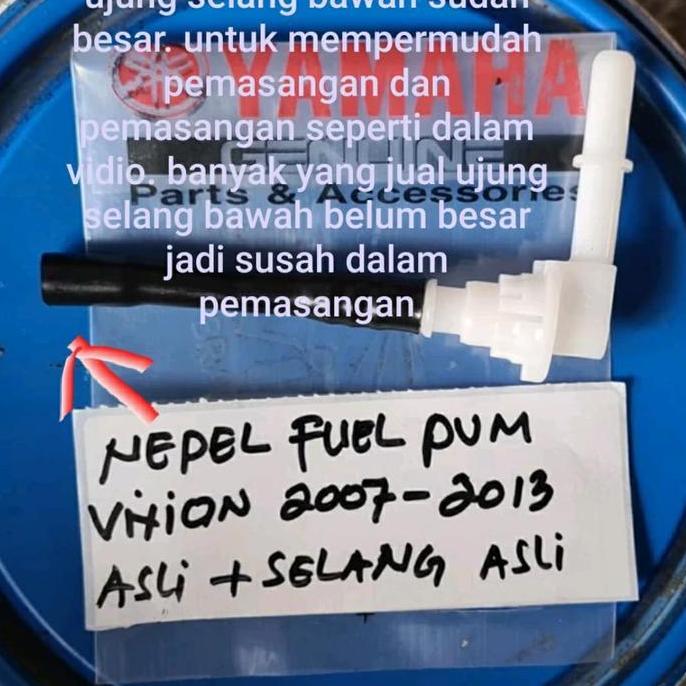 ujung selang bawah sudah
besar. untuk mempermudah
pemasangan dan
pemasangan seperti dalam
vidio. banyak yang jual ujung
selang bawah belum besar
jadi susah dalam
pemasangan
YAMAHA
GENUINE
Parts & Accessories
NEPEL FUEL PUM
VIXION 2007-2013
ASLi + SELANG ASLi